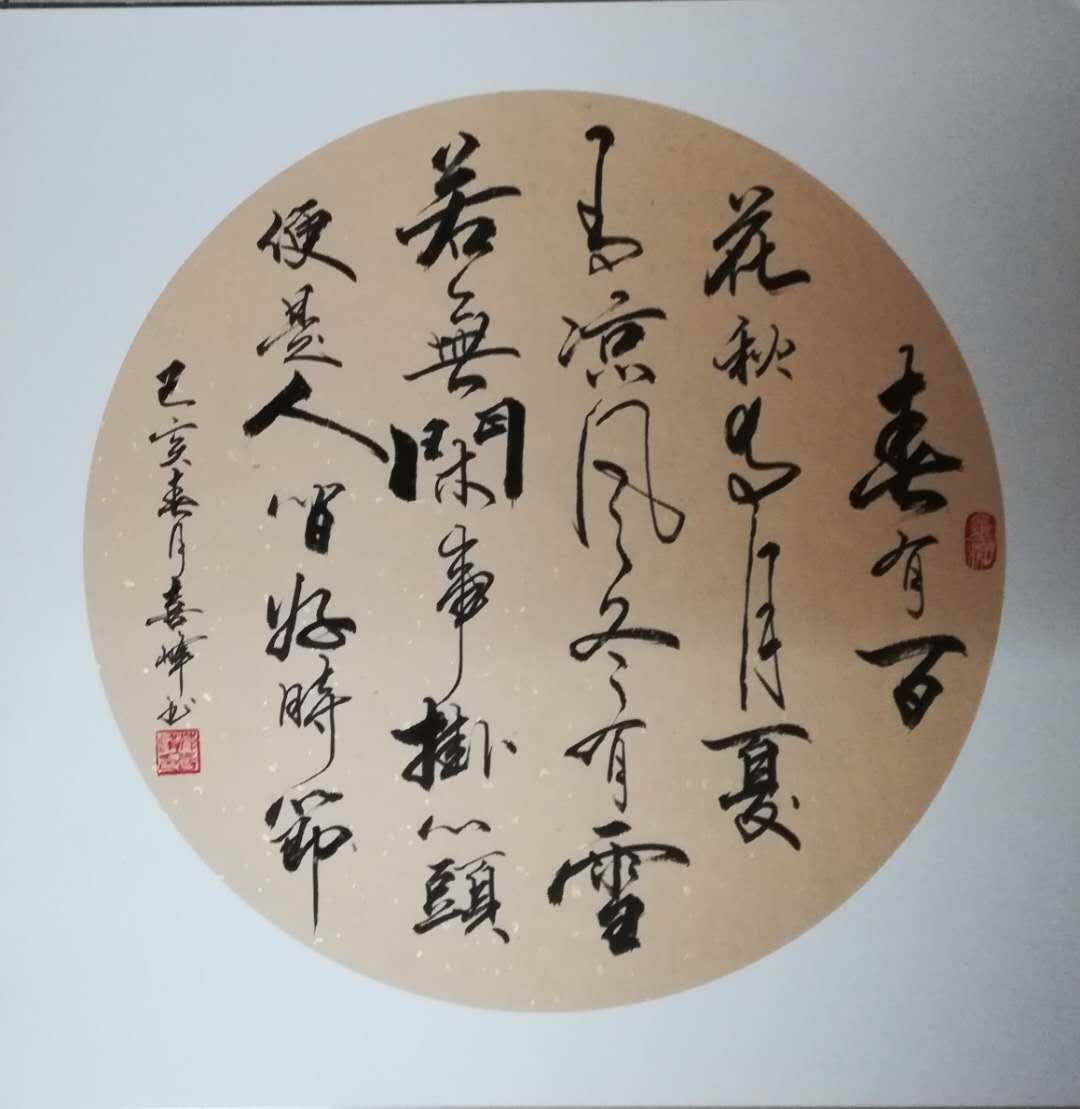 春有百
花秋有月夏
有凉风冬有雪
若無閑事掛心頭
便是人间好時節
己亥春月喜峰书